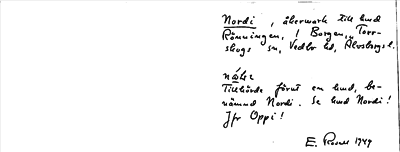 Nordi, åkermark till hmd
Rönningen, i Borgen, Torr-
skogs sn, Vedbo hd, Älvsborgs l.
Tillhörde förut en hmd, be-
nämnd Nordi. Se hmd Nordi!
Jfr Oppi!
E. 1949